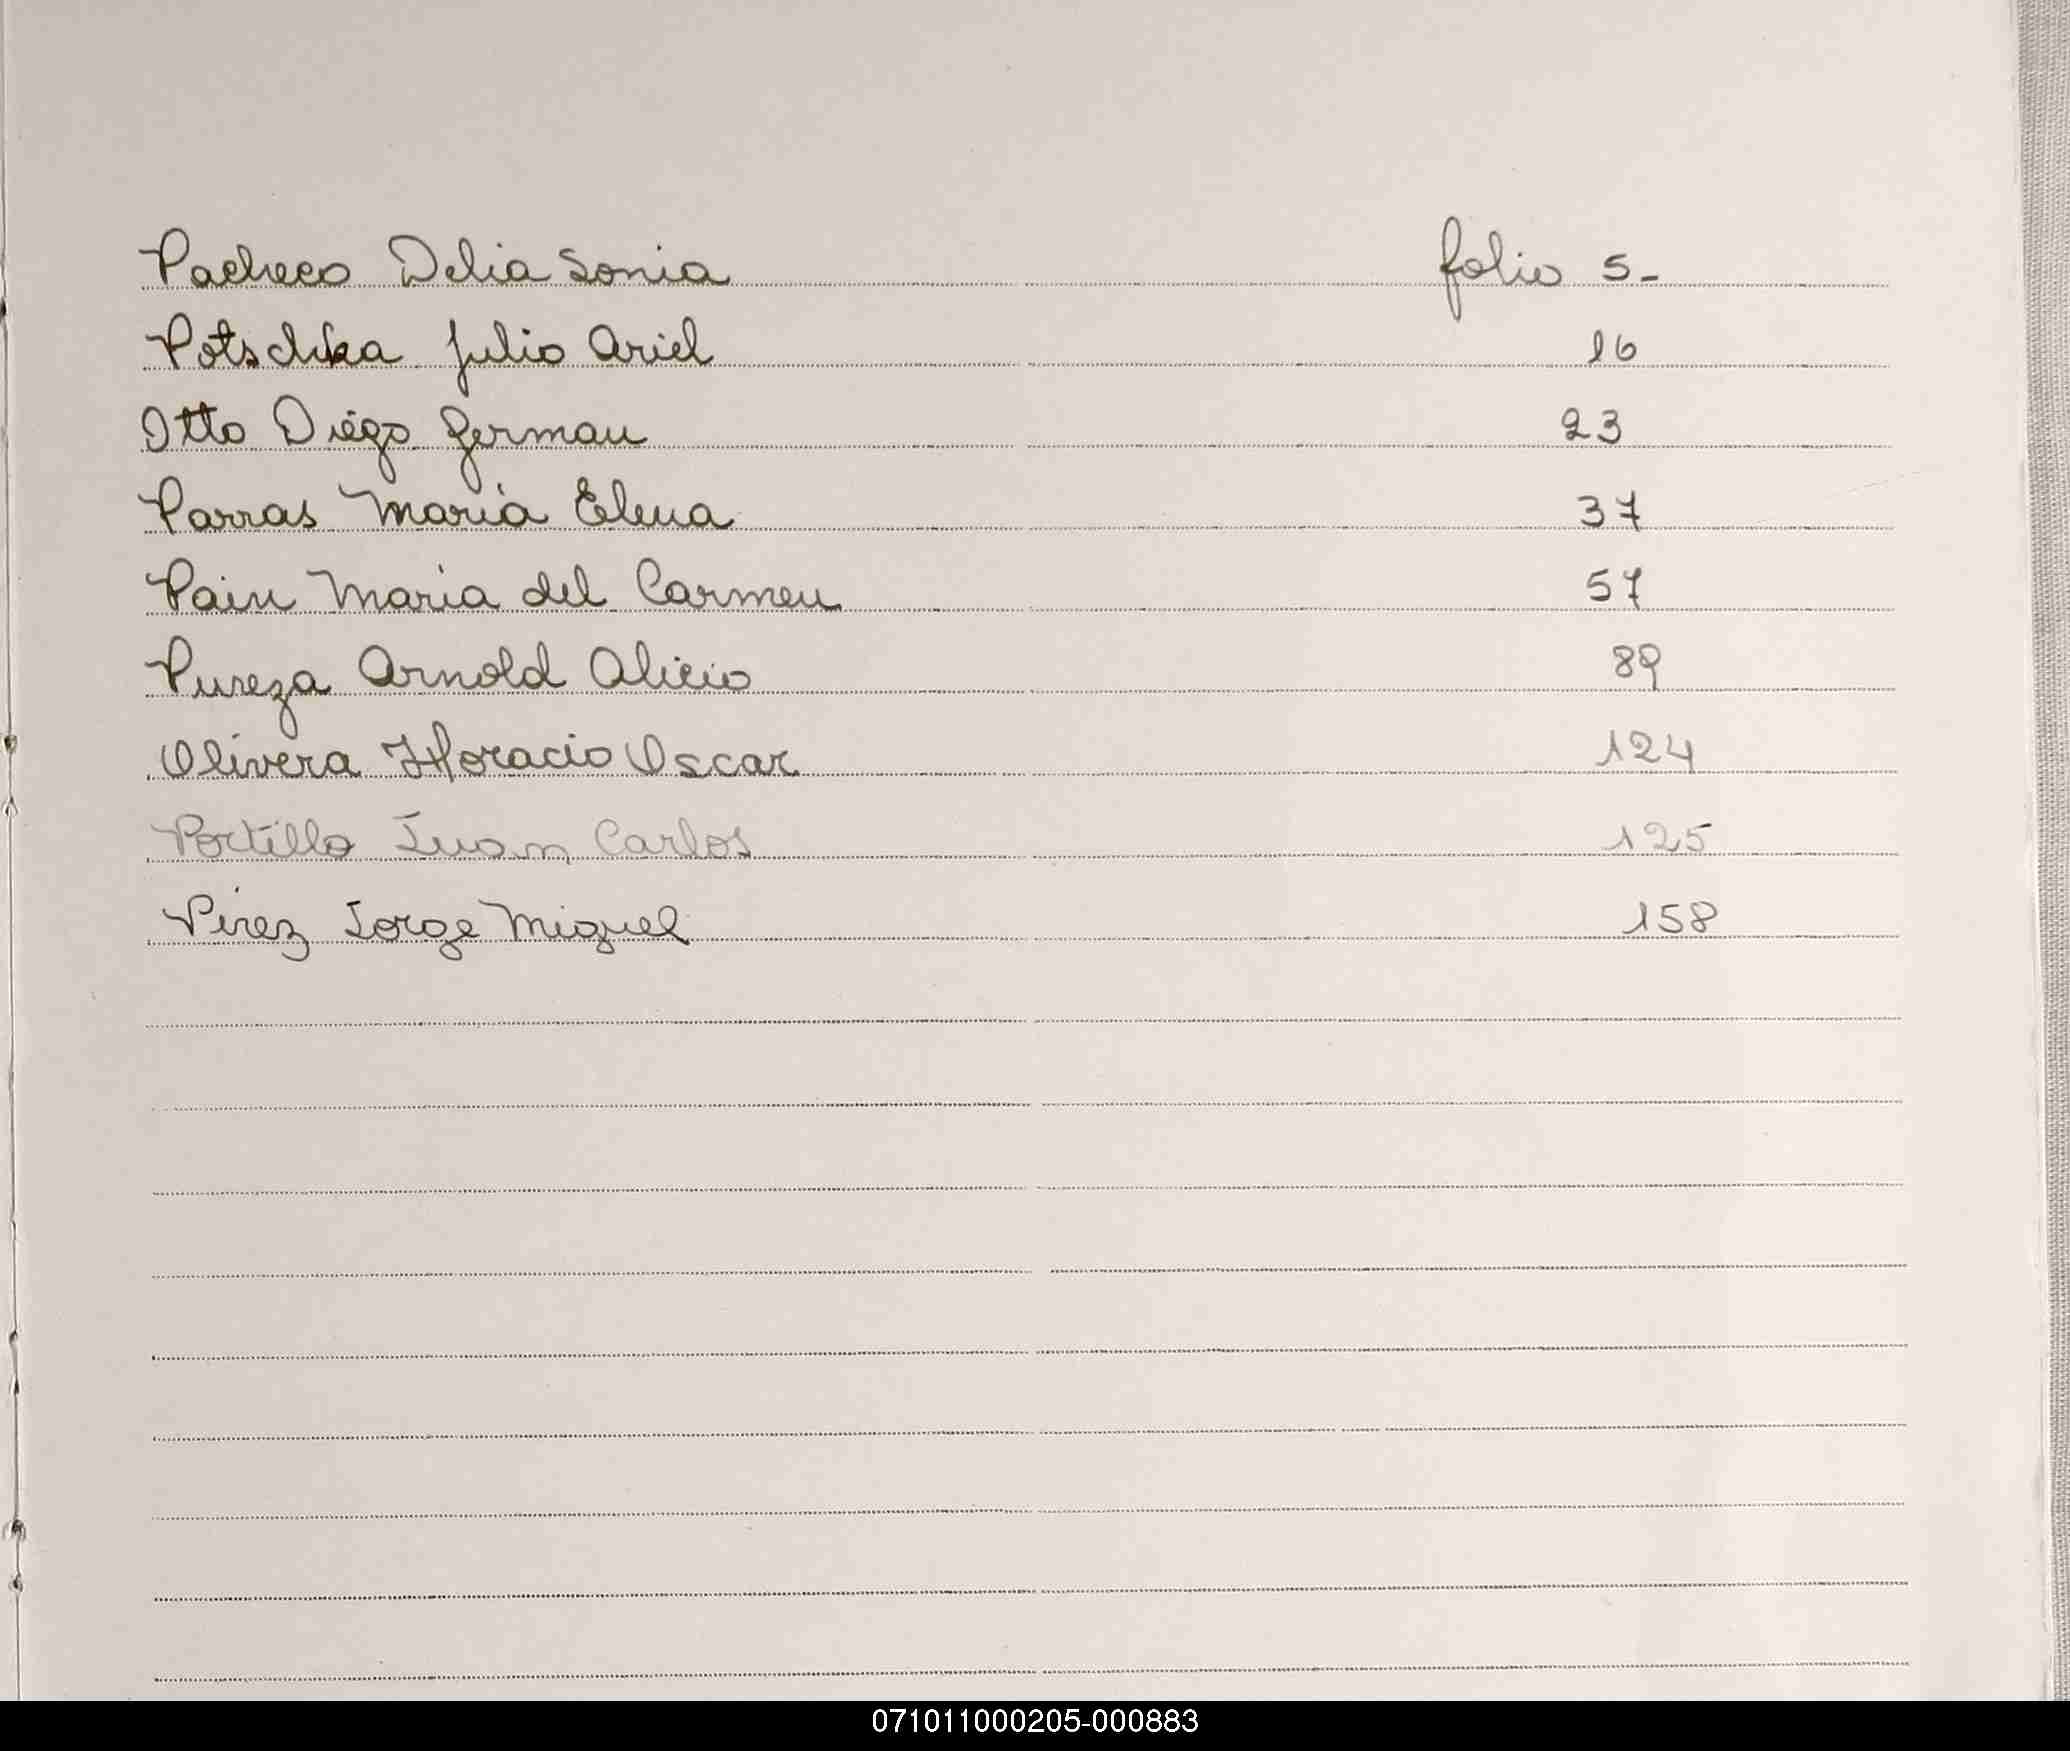 Pacheco Delia Sonia folio 5-
Potschka Julio Ariel 16
Otto Diégo German 23
Parras Maria Elena 37
Pain Maria del Carmen 57
Pureza Arnold Alicio 89
Olivera Horacio Oscar 124
Portillo Juan Carlos 125
Pérez Jorge Miguel 158
071011000205-000883